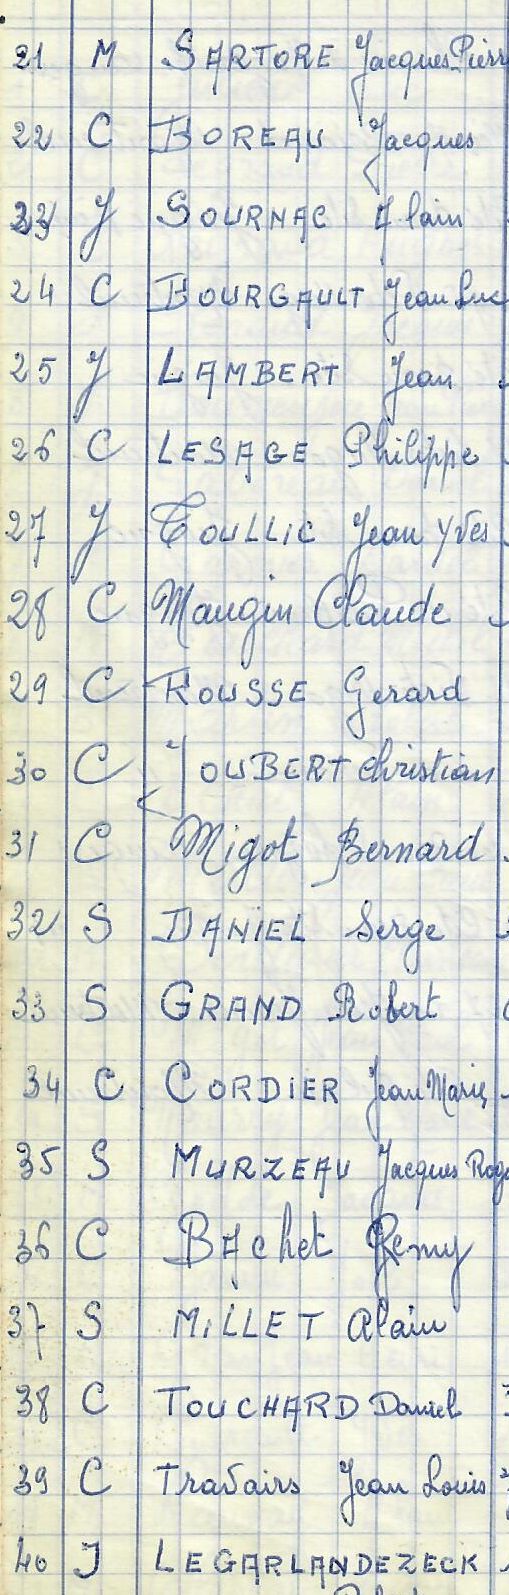 21 M SARTORE Jacques Pierr
22 C BOREAU Jacques
23 J SOURNAC Alain
24 C BOURGAULT Jean Luc
25 J LAMBERT Jean
26 C LESAGE Philippe
27 J TOULLIC Jean Yves
28 C Maugin Claude
29 C ROUSSE Gerard
30 C JOUBERT Christian
31 C Migot Bernard
32 S DANIEL Serge
33 S GRAND Robert
34 C CORDIER Jean Marie
35 S MURZEAU Jacques Roge
36 C BAchet Remy
37 S MiLLET Alain
38 C TOUCHARD Daniel
39 C Travairs Jean Louis
40 J LEGARLANDEZECK